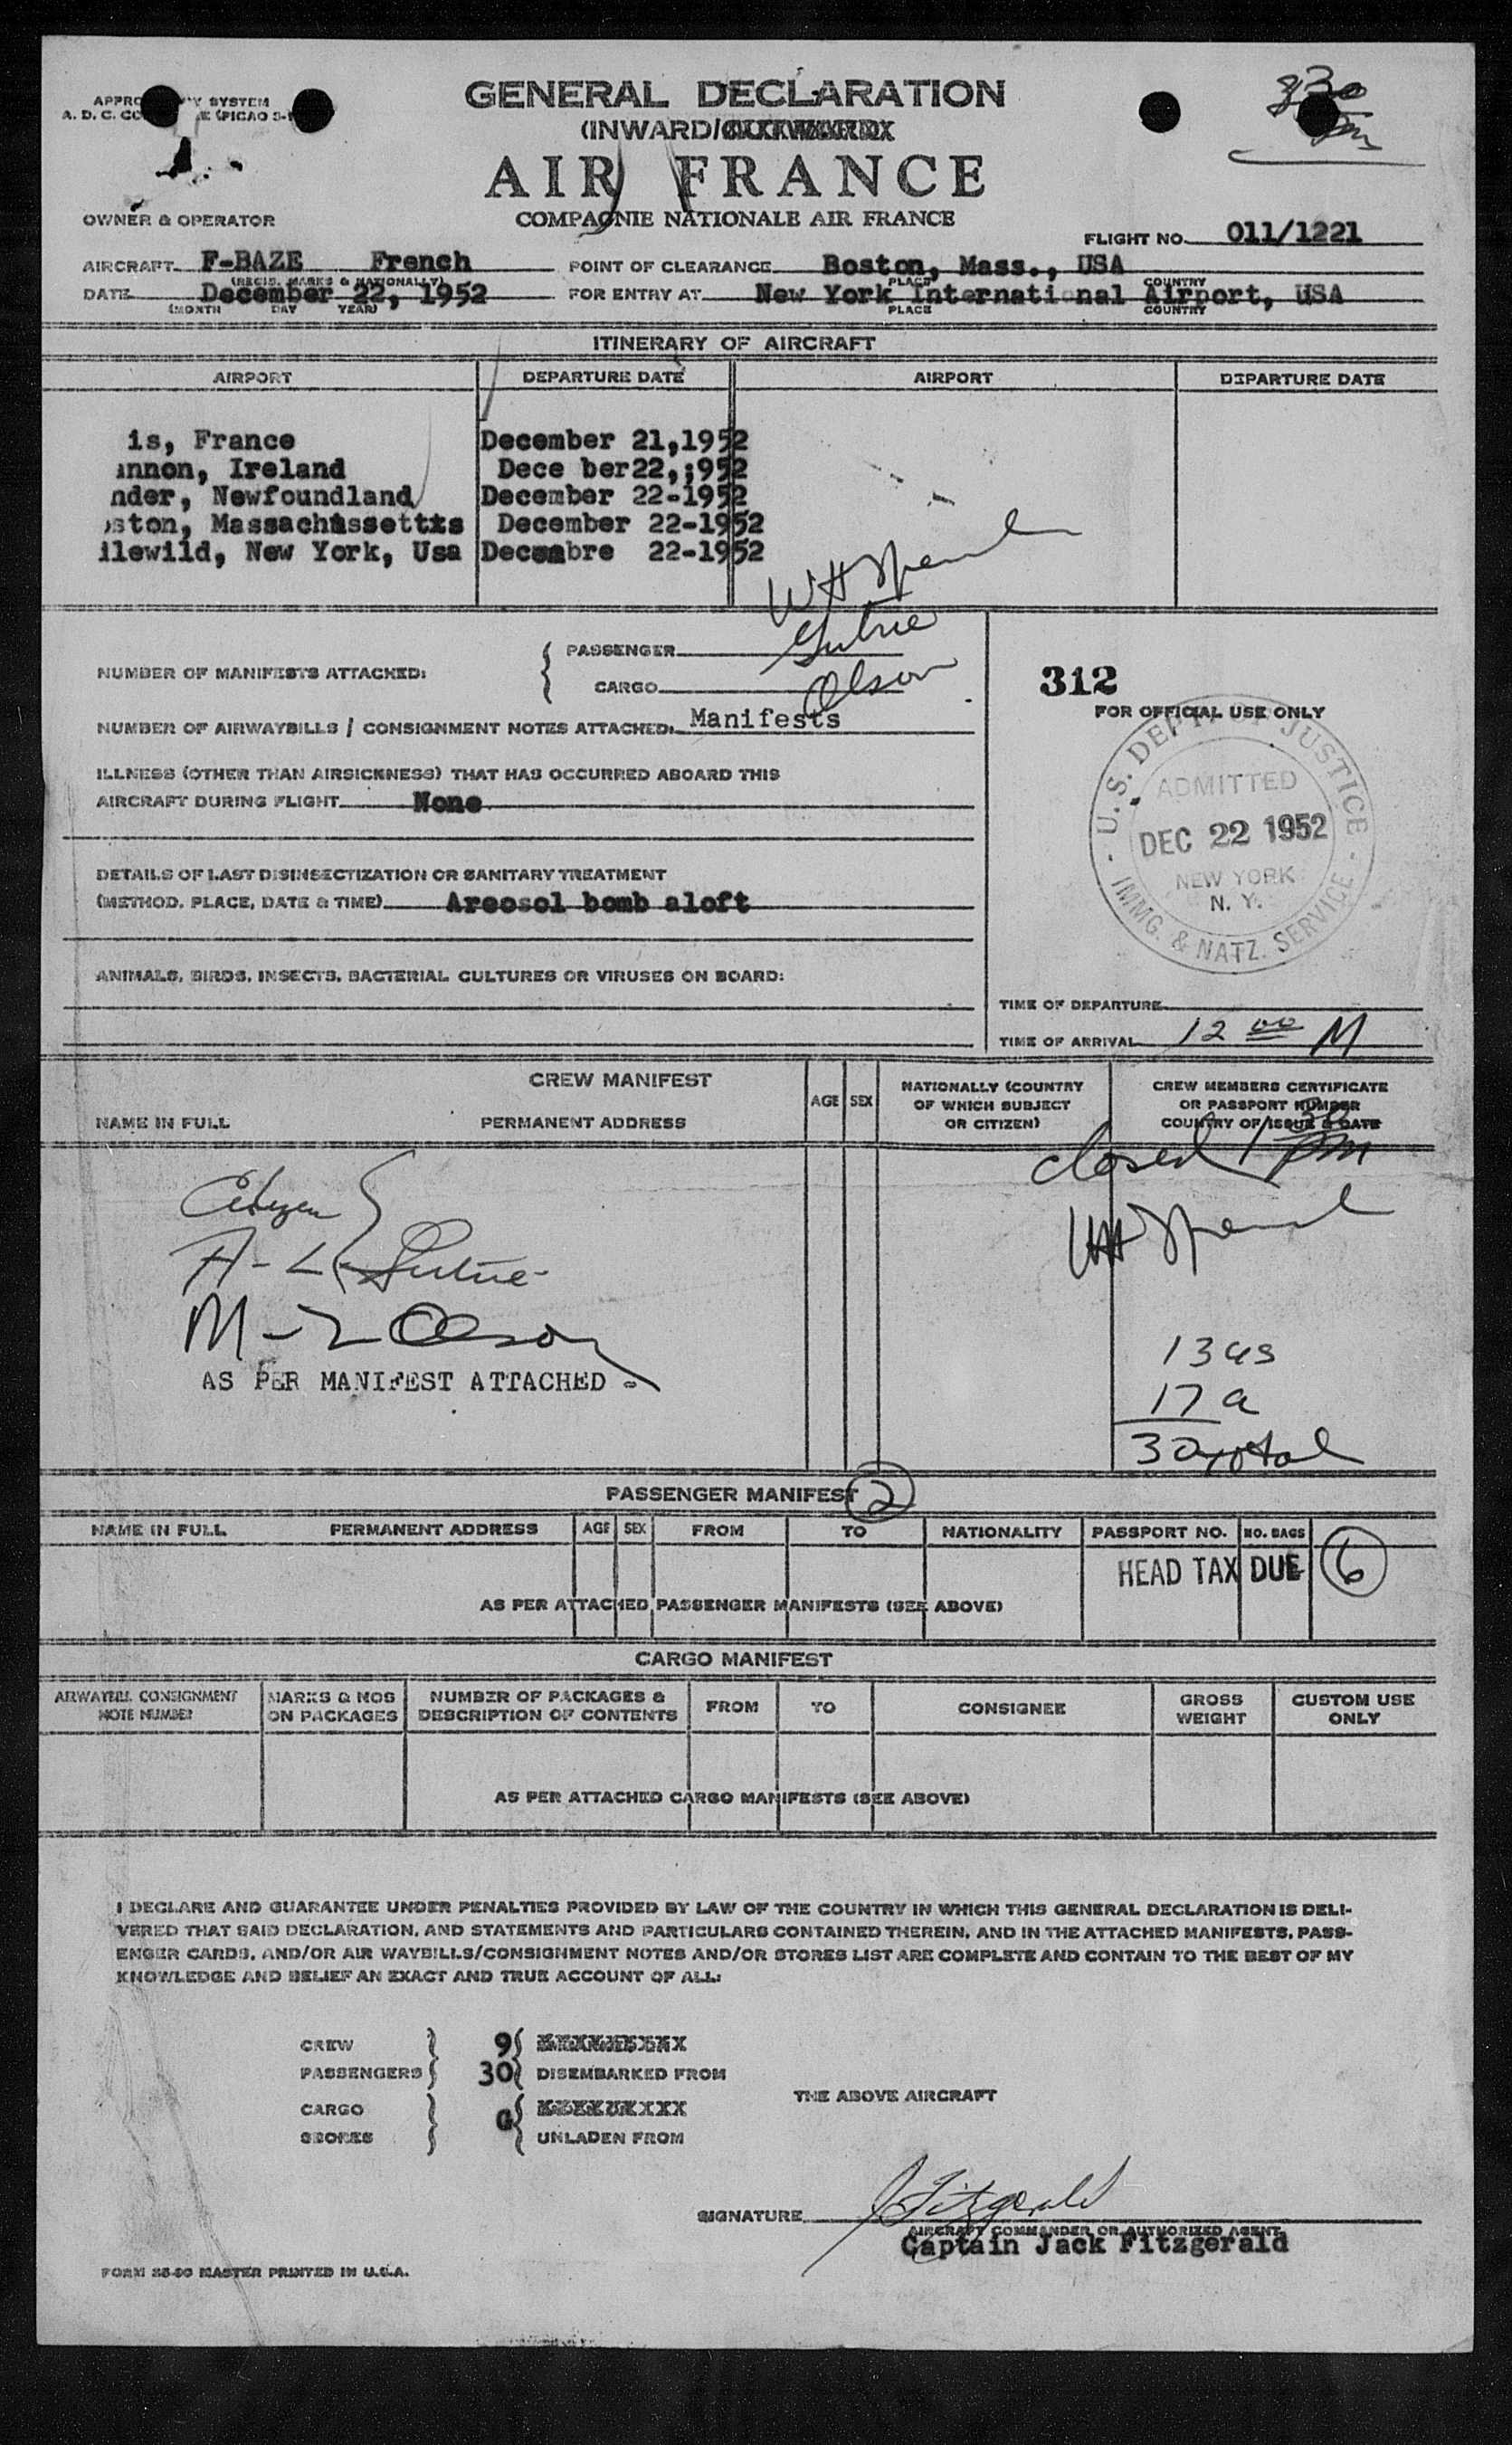 GENERAL DECLARATION
(INWARD/
AIR FRANCE
COMPAGNIE NATIONALE AIR FRANCE
SYSTEM
A. D. C.
OWNER & OPERATOR
FLIGHT NO. 011/1221
AIRCRAFT F-BAZE French POINT OF CLEARANCE Boston, Mass., USA
(REGIS. MARKS & NATIONALLY) PLACE COUNTRY
DATE December 22, 1952 FOR ENTRY AT New York International Airport, USA
(MONTH DAY YEAR) PLACE COUNTRY
ITINERARY OF AIRCRAFT
AIRPORT DEPARTURE DATE AIRPORT DEPARTURE DATE
is, France December 21,1952
nnon, Ireland Dece ber22,;952
nder, Newfoundland December 22-1952
ston, Massachussettts December 22-1952
dlewild, New York, Usa Decembre 22-1952
Olson
NUMBER OF MANIFESTS ATTACHED: { PASSENGER
CARGO
312
FOR OFFICIAL USE ONLY
NUMBER OF AIRWAYBILLS / CONSIGNMENT NOTES ATTACHED: Manifests
U.S. DEPT. OF JUSTICE
ADMITTED
DEC 22 1952
NEW YORK
N. Y.
IMMG. & NATZ. SERVICE
ILLNESS (OTHER THAN AIRSICKNESS) THAT HAS OCCURRED ABOARD THIS
AIRCRAFT DURING FLIGHT None
DETAILS OF LAST DISINSECTIZATION OR SANITARY TREATMENT
(METHOD, PLACE, DATE & TIME) Areosol bomb aloft
ANIMALS, BIRDS, INSECTS, BACTERIAL CULTURES OR VIRUSES ON BOARD:
TIME OF DEPARTURE
TIME OF ARRIVAL 12 00 M
CREW MANIFEST
NAME IN FULL PERMANENT ADDRESS AGE SEX
NATIONALLY (COUNTRY
OF WHICH SUBJECT
OR CITIZEN)
CREW MEMBERS CERTIFICATE
OR PASSPORT NUMBER
COUNTRY OF ISSUE & DATE
closed 1 30 PM
M-L Olson
AS PER MANIFEST ATTACHED -
13 us
17 a
30 total
PASSENGER MANIFEST 2
NAME IN FULL PERMANENT ADDRESS AGE SEX FROM TO NATIONALITY PASSPORT NO. NO. BAGS
HEAD TAX DUE 6
AS PER ATTACHED PASSENGER MANIFESTS (SEE ABOVE)
CARGO MANIFEST
AIRWAYBILL CONSIGNMENT
NOTE NUMBER
MARKS & NOS
ON PACKAGES
NUMBER OF PACKAGES &
DESCRIPTION OF CONTENTS
FROM TO CONSIGNEE
GROSS
WEIGHT
CUSTOM USE
ONLY
AS PER ATTACHED CARGO MANIFESTS (SEE ABOVE)
I DECLARE AND GUARANTEE UNDER PENALTIES PROVIDED BY LAW OF THE COUNTRY IN WHICH THIS GENERAL DECLARATION IS DELI-
VERED THAT SAID DECLARATION, AND STATEMENTS AND PARTICULARS CONTAINED THEREIN, AND IN THE ATTACHED MANIFESTS, PASS-
ENGER CARDS, AND/OR AIR WAYBILLS/CONSIGNMENT NOTES AND/OR STORES LIST ARE COMPLETE AND CONTAIN TO THE BEST OF MY
KNOWLEDGE AND BELIEF AN EXACT AND TRUE ACCOUNT OF ALL:
CREW 9
PASSENGERS 30 DISEMBARKED FROM
THE ABOVE AIRCRAFT
CARGO
STORES UNLADEN FROM
SIGNATURE J Fitzgerald
AIRCRAFT COMMANDER OR AUTHORIZED AGENT
Captain Jack Fitzgerald
FORM 26-60 MASTER PRINTED IN U.S.A.